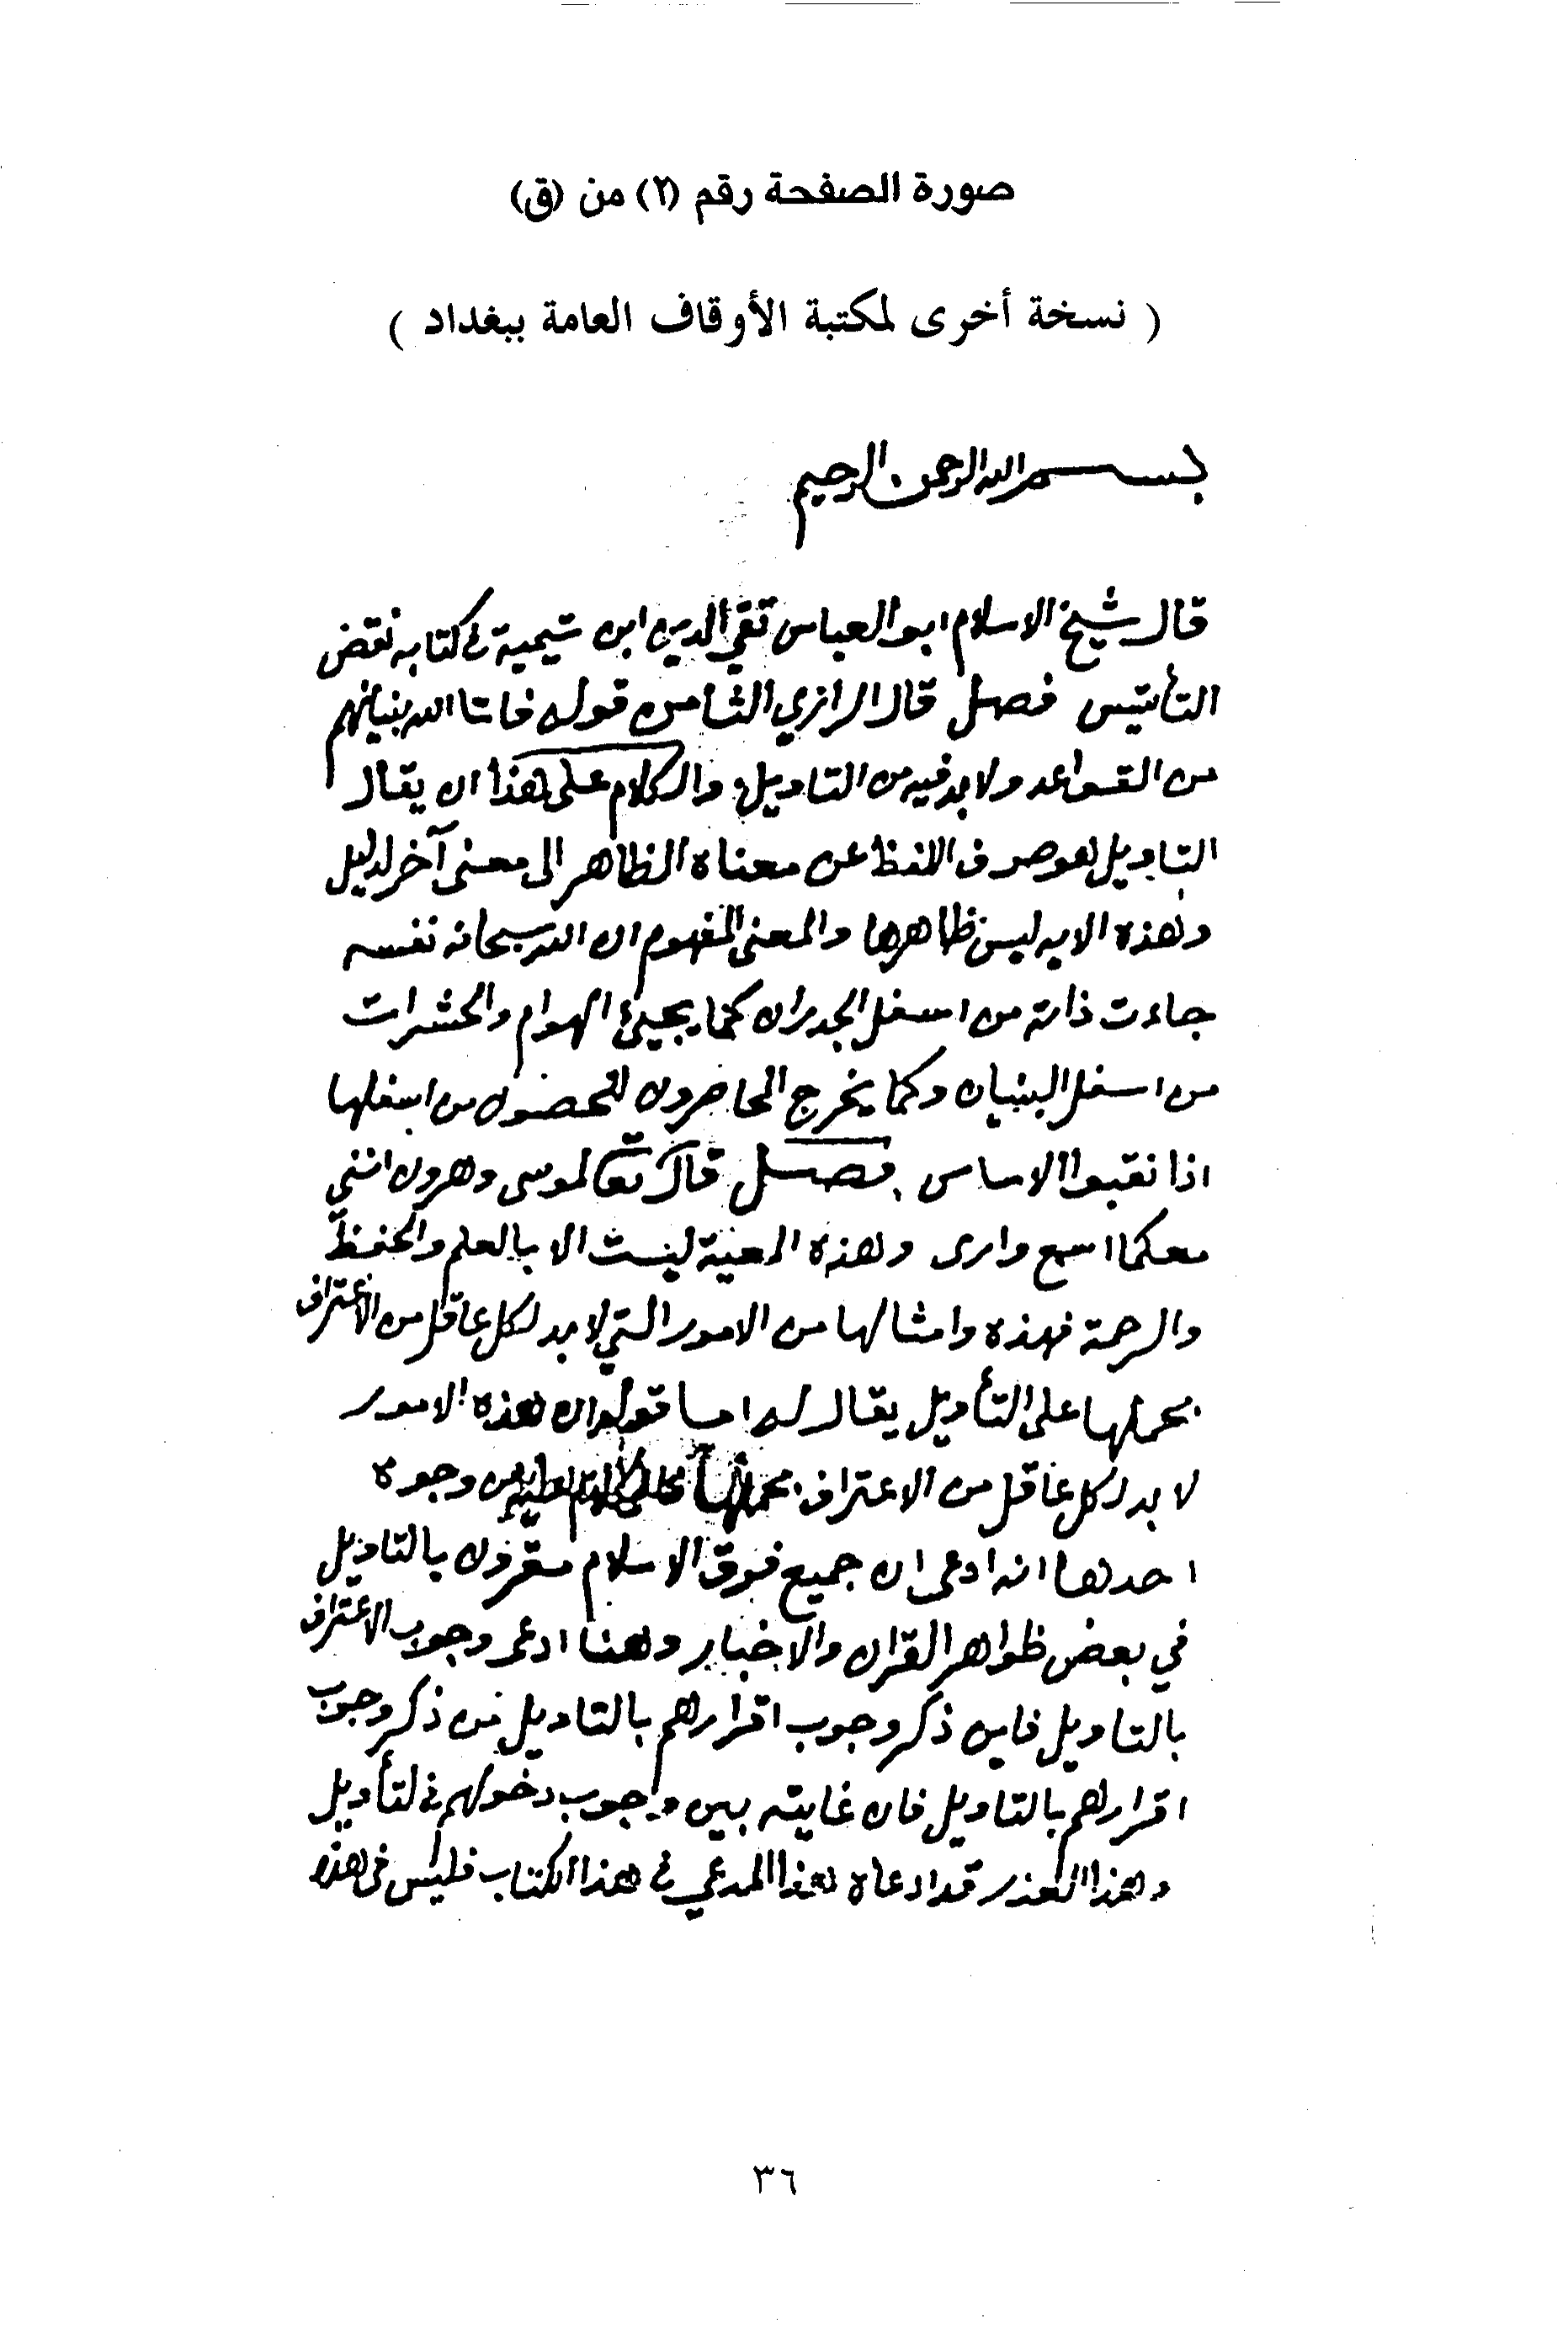 صورة الصفحة رقم (٢) من (ق)
( نسخة أخرى لمكتبة الأوقاف العامة ببغداد )
بسم الله الرحمن الرحيم
قال شيخ الاسلام ابو العباس تقي الدين ابن تيمية في كتابه نقض
التأسيس فصل قال الرازي الثامن قوله فاتا الله بنيانهم
من القواعد ولا بد فيه من التاويل والكلام على هذا ان يقال
التاويل هو صرف اللفظ عن معناه الظاهر الى معنى آخر لدليل
وهذه الايه ليس ظاهرها والمعنى المفهوم ان الله سبحانه نفسه
جاءت ذاته من اسفل الجدران كما يجيئ الهوام والحشرات
من اسفل البنيان وكما يخرج المحاصرون للحصون من اسفلها
اذا نقبوا الاساس فصل قال تعالى لموسى وهرون انني
معكما اسمع وارى وهذه المعية ليست الا بالعلم والحفظ
والرحمة فهذه وامثالها من الامور التي لا بد لكل عاقل من الاعتراف
بحملها على التأويل يقال له اما قوله ان هذه الامور
لا بد لكل عاقل من الاعتراف بحملها من وجوه
احدها انه ادعى ان جميع فرق الاسلام مقرون بالتاويل
في بعض ظواهر القران والاخبار وهنا ادعى وجوب الاعتراف
بالتاويل فاين ذكر وجوب اقرارهم بالتاويل من ذكر وجوب
اقرارهم بالتاويل فان غايته بين وجوب دخولهم في لتأويل
وهذا العذر قد ادعاه هذا المدعي في هذا الكتاب فليس في هذه
٣٦